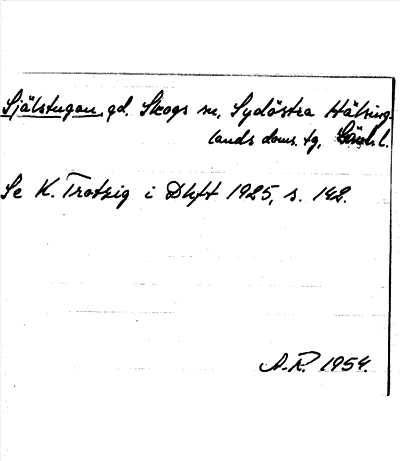 Själstugan, gd. Skogs sn, Sydöstra Hälsing-
lands doms. tg, Gävl. l.
Se K. Trotzig i Dhft 1925, s. 142.
A.R. 1954.